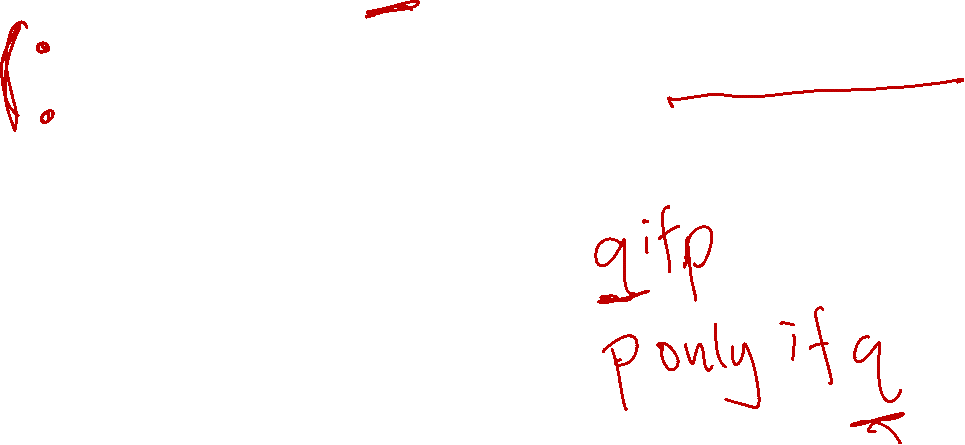 q if p
p only if q